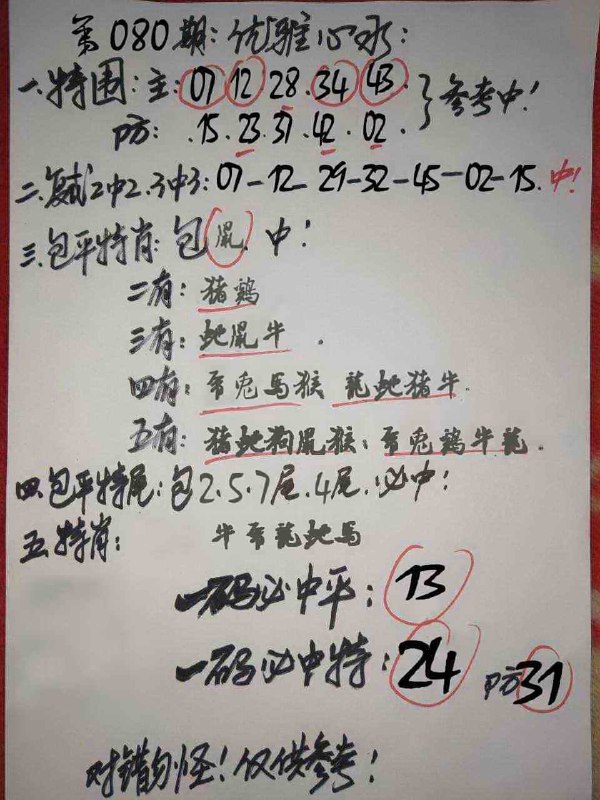 第080期:优雅心水:
一.特围:主:07 12 28.34 43.
P方:.15.23.31.42.02. }参考中!
二.复试2中2.3中3:07-12-29-32-45-02-15.中!
三.包平特肖:包鼠.中!
二有:猪鷄
三有:蛇鼠牛.
四有:帍兔馬猴 龍蛇猪牛.
五有:猪蛇狗鼠猴:帍兔鷄牛龍.
四.包平特尾:包2.5.7尾.4尾.必中!
五.特肖: 牛帍龍蛇馬
一码必中平:13
一码必中特:24 P方31
对错勿怪!仅供参考!